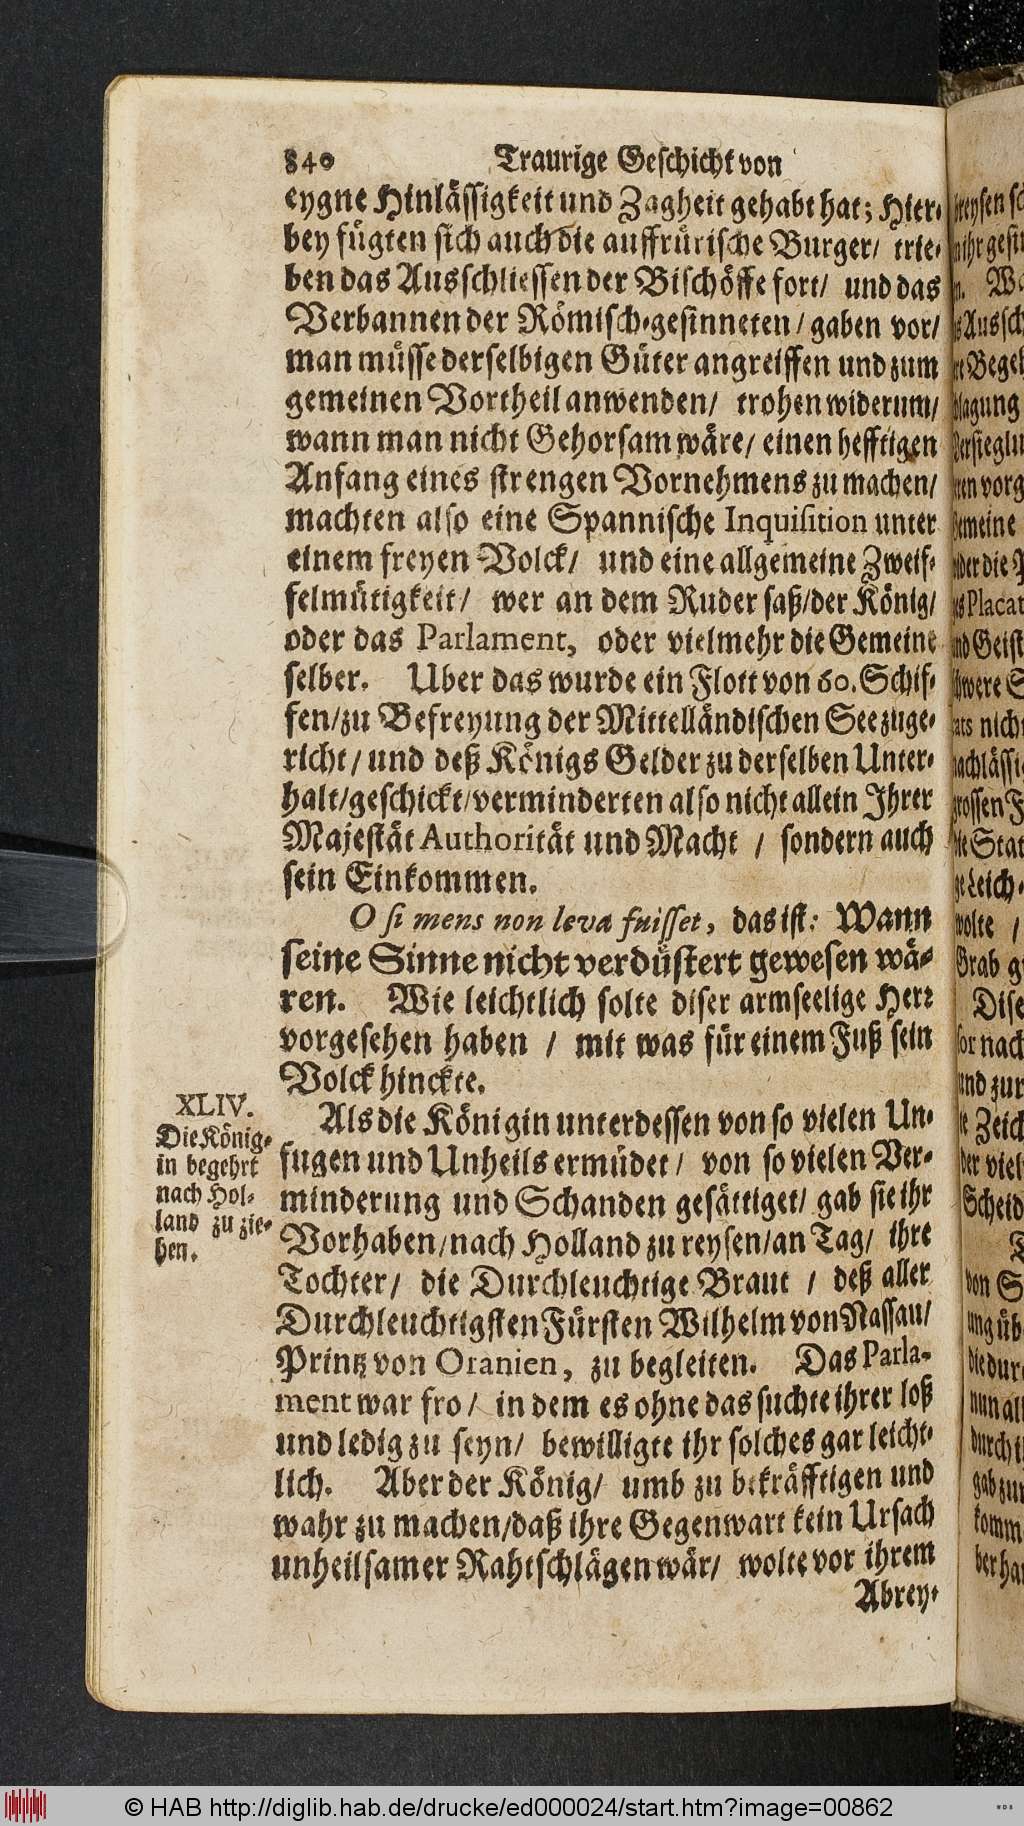 840 Traurige Geschicht von
eygne Hinlässigkeit und Zagheit gehabt hat; Hier-
bey fügten sich auch die auffrürische Burger/ trie-
ben das Ausschliessen der Bischöffe fort/ und das
Verbannen der Römisch-gesinneten/ gaben vor/
man müsse derselbigen Güter angreiffen und zum
gemeinen Vortheil anwenden/ trohen widerum/
wann man nicht Gehorsam wäre/ einen hefftigen
Anfang eines strengen Vornehmens zu machen/
machten also eine Spannische Inquisition unter
einem freyen Volck/ und eine allgemeine Zweif-
felmütigkeit/ wer an dem Ruder saß/der König/
oder das Parlament, oder vielmehr die Gemeine
selber. Uber das wurde ein Flott von 60. Schif-
fen/zu Befreyung der Mittelländischen See zuge-
richt/ und deß Königs Gelder zu derselben Unter-
halt/geschickt/verminderten also nicht allein Ihrer
Majestät Authorität und Macht / sondern auch
sein Einkommen.
O si mens non leva fuisset, das ist: Wann
seine Sinne nicht verdüstert gewesen wä-
ren. Wie leichtlich solte diser armseelige Herr
vorgesehen haben / mit was für einem Fuß sein
Volck hinckte.
XLIV.
Die König-
in begehrt
nach Hol-
land zu zie-
hen.
Als die Königin unterdessen von so vielen Un-
fugen und Unheils ermüdet/ von so vielen Ver-
minderung und Schanden gesättiget/ gab sie ihr
Vorhaben/nach Holland zu reysen/an Tag/ ihre
Tochter/ die Durchleuchtige Braut / deß aller
Durchleuchtigsten Fürsten Wilhelm von Nassau/
Printz von Oranien, zu begleiten. Das Parla-
ment war fro/ in dem es ohne das suchte ihrer loß
und ledig zu seyn/ bewilligte ihr solches gar leicht-
lich. Aber der König/ umb zu bekräfftigen und
wahr zu machen/daß ihre Gegenwart kein Ursach
unheilsamer Rahtschlägen wär/ wolte vor ihrem
Abrey-
© HAB http://diglib.hab.de/drucke/ed000024/start.htm?image=00862